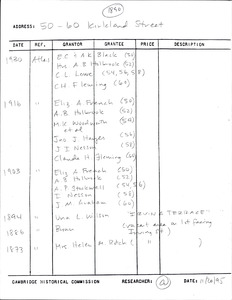 1890
ADDRESS: 50-60 Kirkland Street
DATE REF. GRANTOR GRANTEE PRICE DESCRIPTION
1930 Atlas E C + A K Black (50)
Mrs A B Holbrook (52)
C L Lowe (54,56,58)
C H Fleming (60)
1916 " Eliz A French (50)
A.B Holbrook (52)
M.K
et al
Jas J Hayes (56)
J I Nesson (58)
Claude H. Fleming (60)
1903 " Eliz A French (50)
A B Holbrook (52)
A P Stockwell (54,56)
I Nesson (58)
J M Graham (60)
1894 " Una L. Wilson "IRVING TERRACE"
1886 " (vacant area w lot facing
Irving St)
1877 " Mrs Helen M. Ritch ( " )
CAMBRIDGE HISTORICAL COMMISSION RESEARCHER: a DATE: